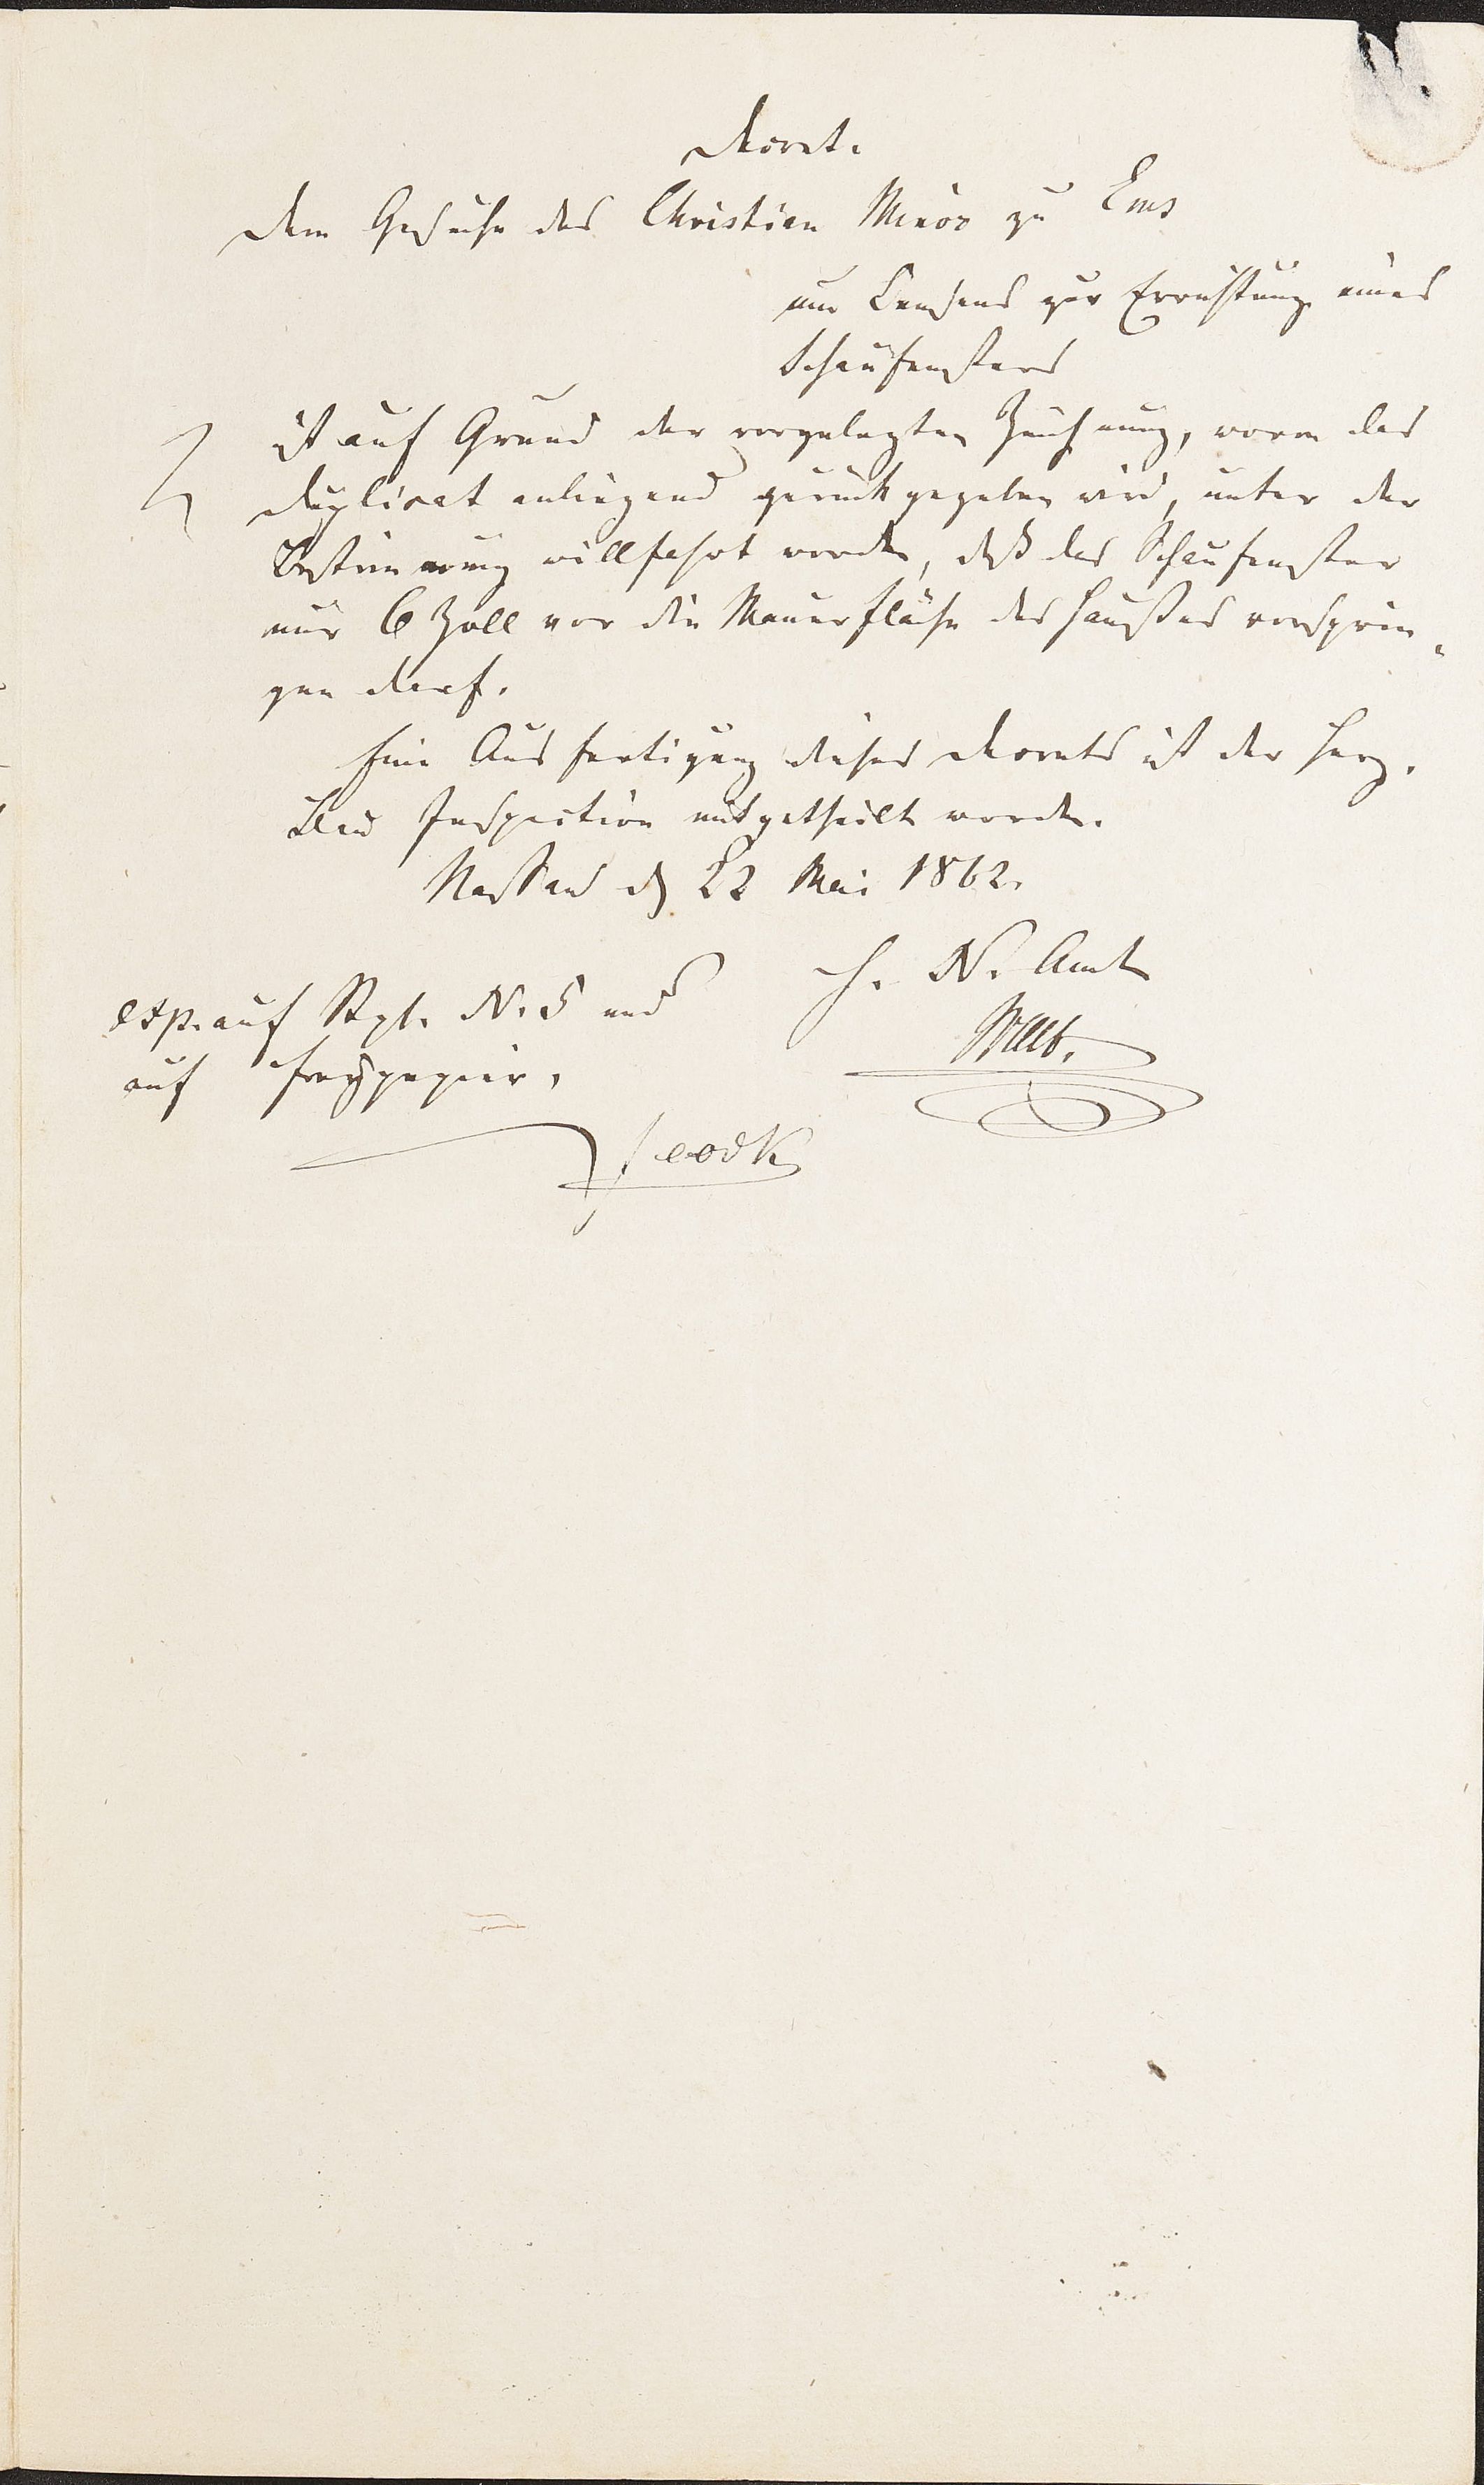 Decret.
Dem Gesuche des Christian Minor zu Ems
um Consens zur Errichtung eines
Schaufensters
ist auf Grund der vorgelegten Zeichnung, wovon das
Duplicat anliegend zurückgegeben wird, unter der
Bestimmung willfahrt worden, daß das Schaufenster
nur 6 Zoll vor die Mauerfläche des Haußes vorsprin-
gen darf.
Eine Ausfertigung dieses Decrets ist der Herz.
Bau Inspection mitgetheilt worden.
Nassau d 22 Mai 1862.
H. N. Amt
exp. auf Stpl. N. 5 und
auf Freypapier.